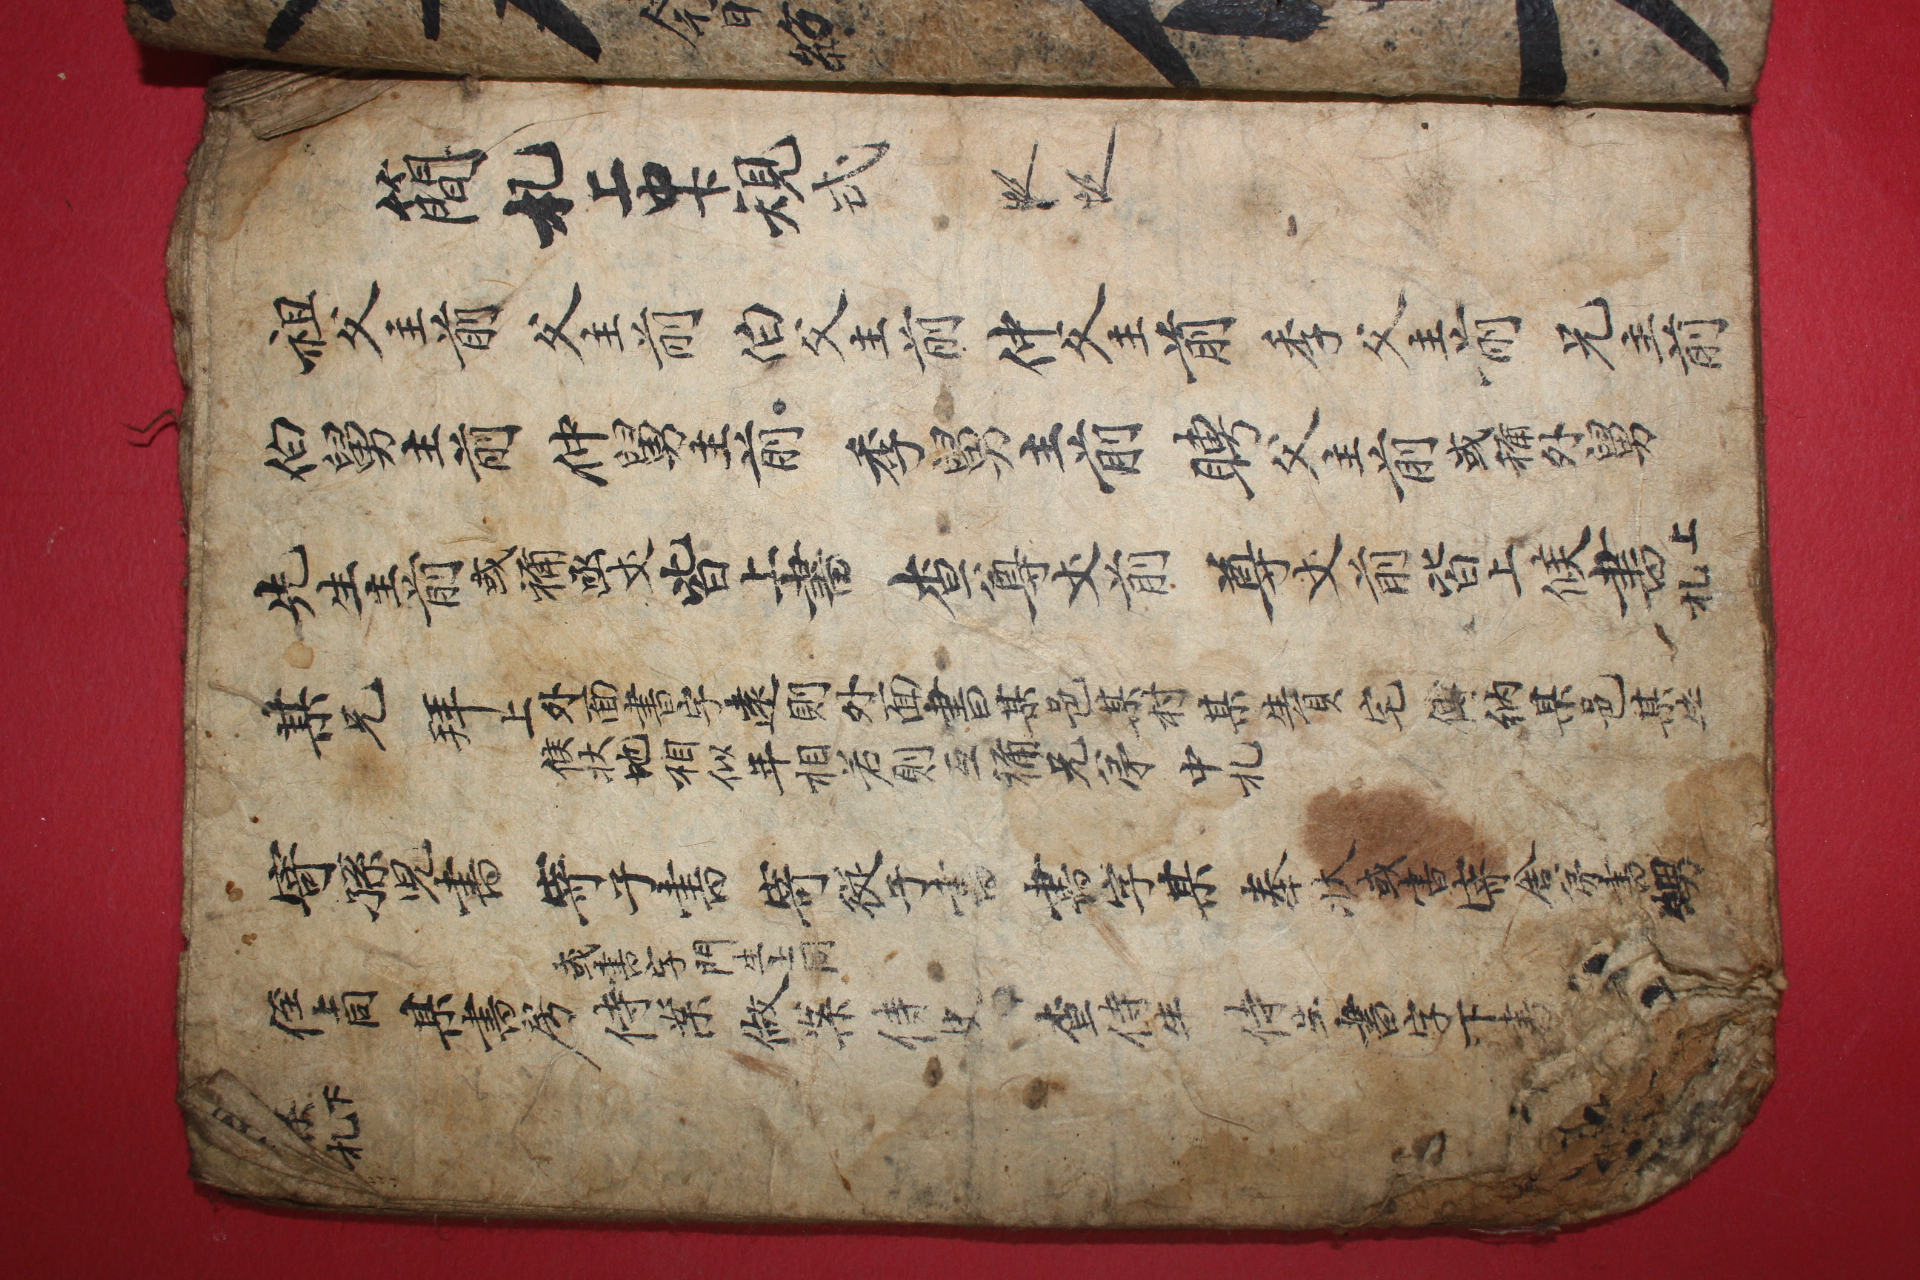 簡札上中下規式
祖父主前 父主前 伯父主前 仲父主前 季父主前 兄主前
伯舅主前 仲舅主前 季舅主前 聘父主前 或稱外舅
先生主前 或稱函丈 皆上書 査尊丈前 尊丈前 皆上候書 上札
某兄 拜上 外面書字遠則外面書某邑某村某生員宅 傳納某邑某生
候狀地相似年相若則互稱兄弟 中札
寄孫児書 寄子書 寄從子書 書字某 奉狀 或書寄舍弟書 甥
或書字門生上同
侄上同 某書房 侍案 做案 侍史 査侍生 侍生 書字下書
下札
今日
終